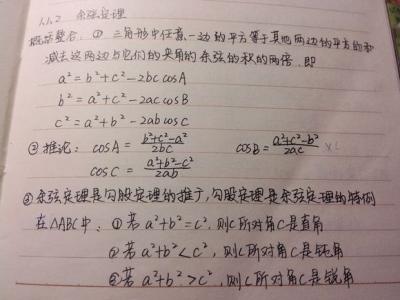 1.1.2 余弦定理
概括整合: ① 三角形中任意一边的平方等于其他两边的平方的和
减去这两边与它们的夹角的余弦的积的两倍. 即
a² = b² + c² - 2bc cosA
b² = a² + c² - 2ac cosB
c² = a² + b² - 2ab cosC
② 推论: cosA = (b²+c²-a²)/2bc cosB = (a²+c²-b²)/2ac
cosC = (a²+b²-c²)/2ab
③ 余弦定理是勾股定理的推广, 勾股定理是余弦定理的特例
在△ABC中: ① 若 a²+b²=c², 则C所对角C是直角
② 若 a²+b²<c², 则C所对角C是钝角
③ 若 a²+b²>c², 则C所对角C是锐角